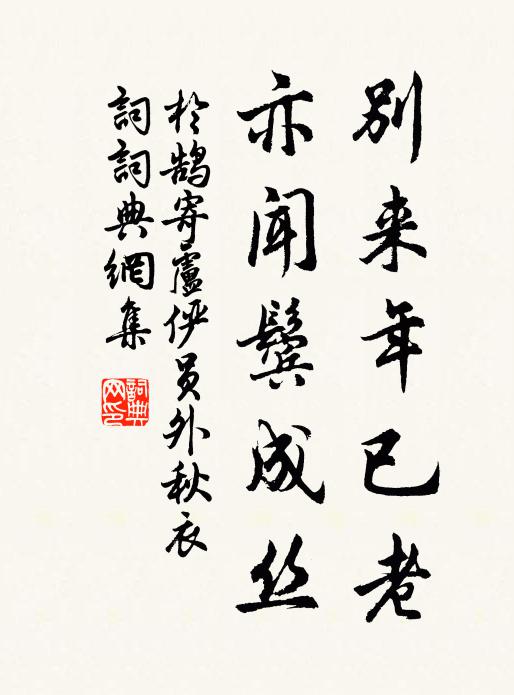 别来年已老
亦闻鬓成丝
於鹄寄盧俨员外秋衣
詞詞典網集
詞典網印